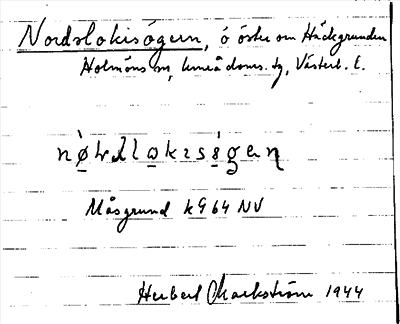 Nordslokisögern, ö öster om Häckgrunden
Holmöns sn, Umeå doms. tg, Västerb. l.
Måsgrund k9 64 NV
Herbert Markström 1944